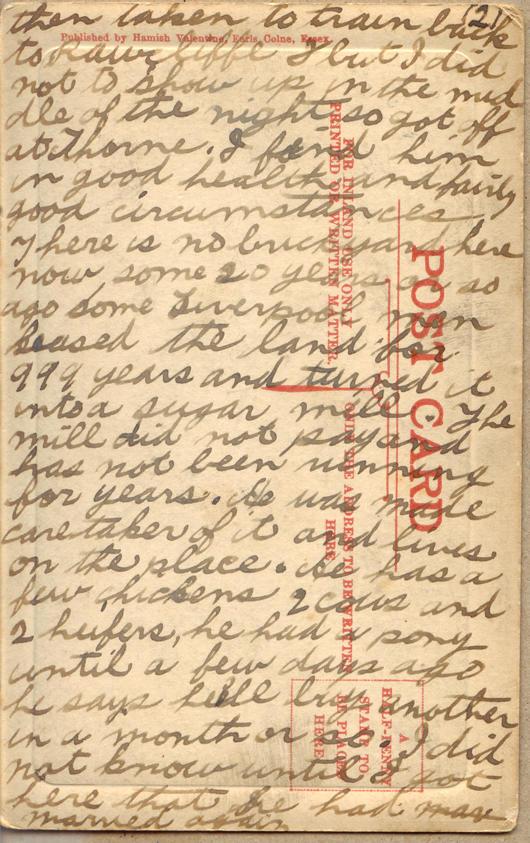 (2)
then taken to train back
Published by Hamish Valentine, Earls Colne, Essex.
to Rawcliffe I but I did
not to show up in the mid
dle of the night so got off
at Thorne. I find him
in good health and fairly
good circumstances.
There is no brickyard here
now some 20 years or so
ago some Liverpool men
leased the land for
999 years and turned it
into a sugar mill. The
mill did not pay and
has not been running
for years. He was made
caretaker of it and lives
on the place. He has a
few chickens 2 cows and
2 heifers, he had a pony
until a few days ago
he says he'll buy another
in a month or so. I did
not know until I got
here that he had mar
married again
POST CARD
FOR INLAND USE ONLY
PRINTED OR WRITTEN MATTER.
ONLY THE ADDRESS TO BE WRITTEN
HERE
A
HALF-PENNY
STAMP TO
BE PLACED
HERE